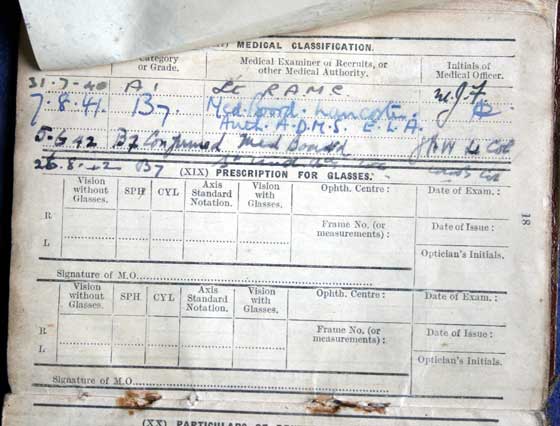 MEDICAL CLASSIFICATION.
Category or Grade. Medical Examiner of Recruits, or other Medical Authority. Initials of Medical Officer.
31.7.40 A1 Lt RAMC
7.8.41. B7. Med. Board.
Auth. A.D.M.S. E.L.A.
5.6.42 B7 Confirmed Med Board Lt Col
B7
(XIX) PRESCRIPTION FOR GLASSES.
Vision without Glasses. SPH CYL Axis Standard Notation. Vision with Glasses. Ophth. Centre : Date of Exam. :
R Frame No. (or measurements) : Date of Issue :
L Optician's Initials.
Signature of M.O.
Vision without Glasses. SPH. CYL. Axis Standard Notation. Vision with Glasses. Ophth. Centre : Date of Exam. :
R Frame No. (or measurements) : Date of Issue :
L Optician's Initials.
Signature of M.O.
18
(XX) PARTICULARS OF